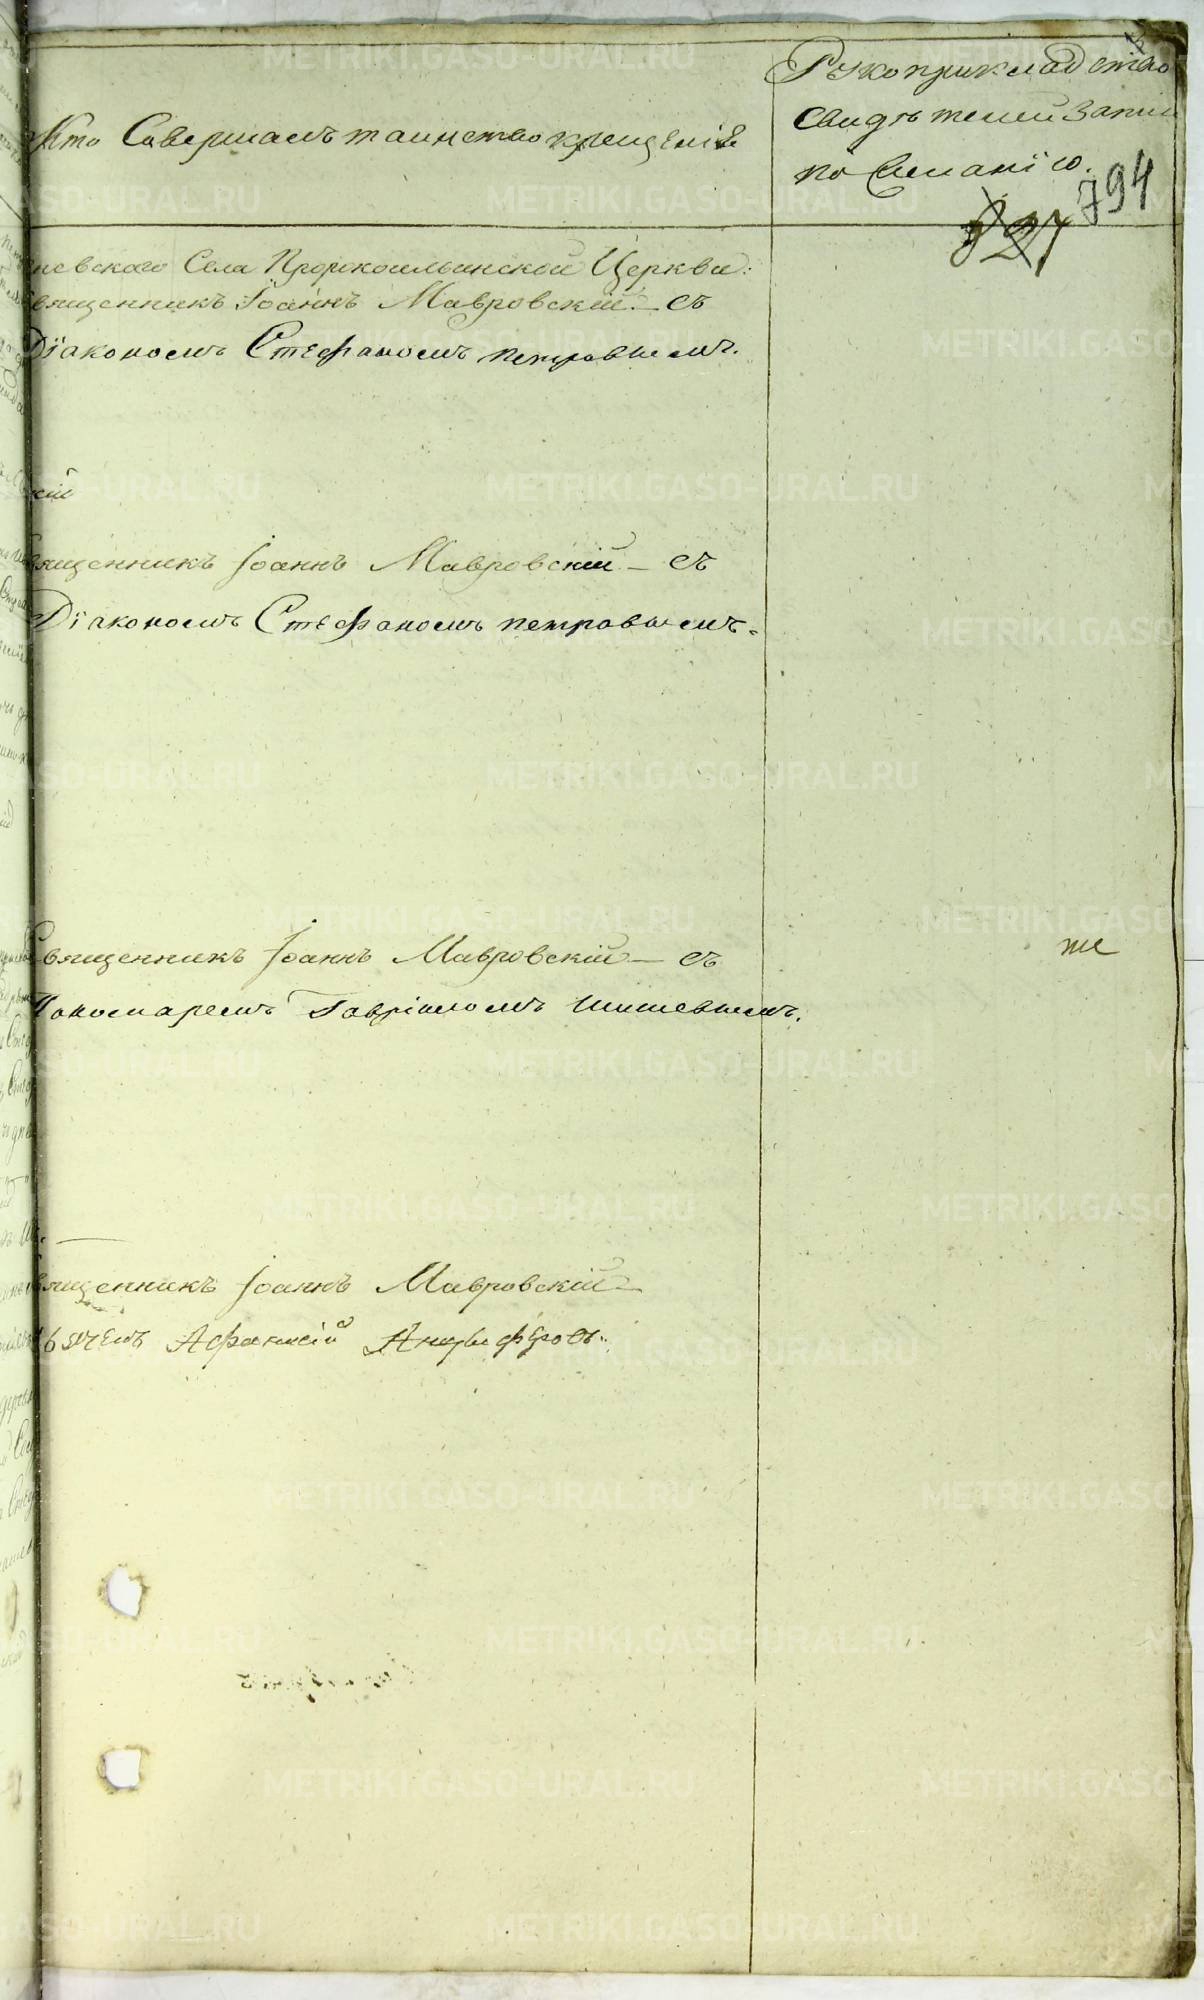 Кто Совершалъ таинство крещенія
Рукоприкладство
Свидѣтелей запи
по желанію.
794
827
невскаго Села Пророкоильинской Церкви:
вященникъ Іоаннъ Мавровскій – съ
Діакономъ Стефаномъ петровымъ.
кій
вященникъ Іоаннъ Мавровскій – съ
Діакономъ Стефаномъ петровымъ.
Священникъ Іоаннъ Мавровскій – съ
Пономаремъ Гавріиломъ Шишевымъ.
вященникъ Іоаннъ Мавровскій
ьячемъ Афанасій Анфыферовъ.
METRIKI.GASO-URAL.RU